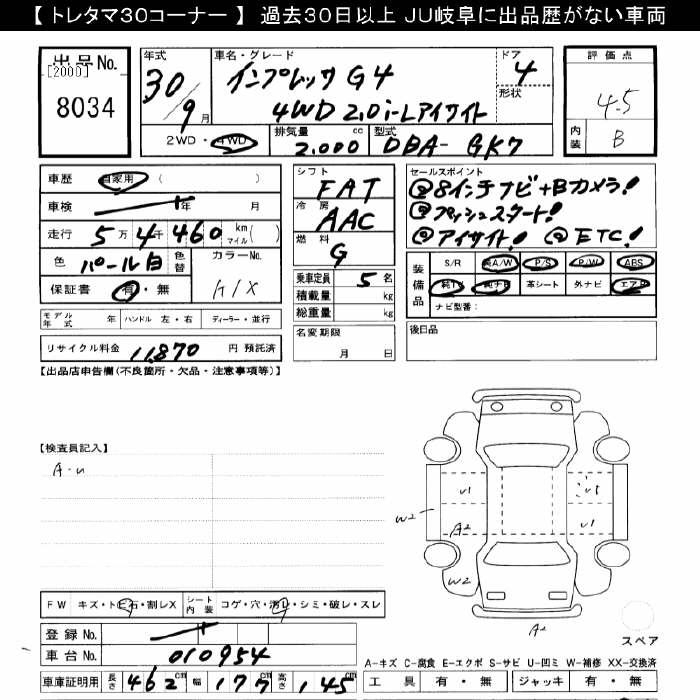 【トレタマ30コーナー】 過去30日以上 JU岐阜に出品歴がない車両
出品No.
[2000]
8034
年式
30/9月
車名・グレード
インプレッサ G4
4WD 2.0i-Lアイサイト
ドア
4
形状
評価点
4.5
内装
B
2WD・4WD
排気量 cc
2.000
型式
DBA- GK7
車歴 自家用 ( )
車検 年 月
走行 5万4千460 km マイル( )
色 パール白 色替 カラーNo.
K1X
保証書 有・無
モデル年式 年 ハンドル 左・右 ディーラー・並行
リサイクル料金 11,870 円 預託済
シフト
FAT
冷房
AAC
燃料
G
乗車定員 5 名
積載量 kg
総重量 kg
名変期限
月 日
セールスポイント
8インチナビ+Bカメラ!
プッシュスタート!
アイサイト! ETC!
装備品
S/R 純A/W P/S P/W ABS
純TV 純ナビ 革シート 外ナビ エアB
ナビ型番:
後日品
【出品店申告欄(不良箇所・欠品・注意事項等)】
【検査員記入】
A・U
FW キズ・トビ石・割レX シート内装 コゲ・穴・汚レ・シミ・破レ・スレ
登録No.
車台No. 010954
車庫証明用 長さ 462cm 幅 177cm 高さ 145cm
U1
U1
W2
A2
U1
W2
A2
スペア
A-キズ C-腐食 E-エクボ S-サビ U-凹ミ W-補修 XX-交換済
工具 有・無 ジャッキ 有・無